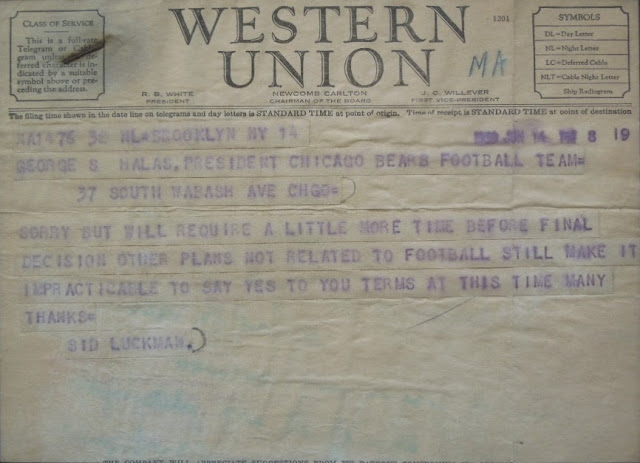 CLASS OF SERVICE
This is a full-rate
Telegram or Cable-
gram unless its de-
ferred character is in-
dicated by a suitable
symbol above or pre-
ceding the address.
WESTERN
UNION
1201
MA
SYMBOLS
DL=Day Letter
NL=Night Letter
LC=Deferred Cable
NLT=Cable Night Letter
Ship Radiogram
R. B. WHITE
PRESIDENT
NEWCOMB CARLTON
CHAIRMAN OF THE BOARD
J. C. WILLEVER
FIRST VICE-PRESIDENT
The filing time shown in the date line on telegrams and day letters is STANDARD TIME at point of origin. Time of receipt is STANDARD TIME at point of destination
38 NL=BROOKLYN NY 14
1939 JUN 14 PM 8 19
GEORGE S HALAS, PRESIDENT CHICAGO BEARS FOOTBALL TEAM=
37 SOUTH WABASH AVE CHGO=
SORRY BUT WILL REQUIRE A LITTLE MORE TIME BEFORE FINAL
DECISION OTHER PLANS NOT RELATED TO FOOTBALL STILL MAKE IT
IMPRACTICABLE TO SAY YES TO YOU TERMS AT THIS TIME MANY
THANKS=
SID LUCKMAN.
THE COMPANY WILL APPRECIATE SUGGESTIONS FROM ITS PATRONS